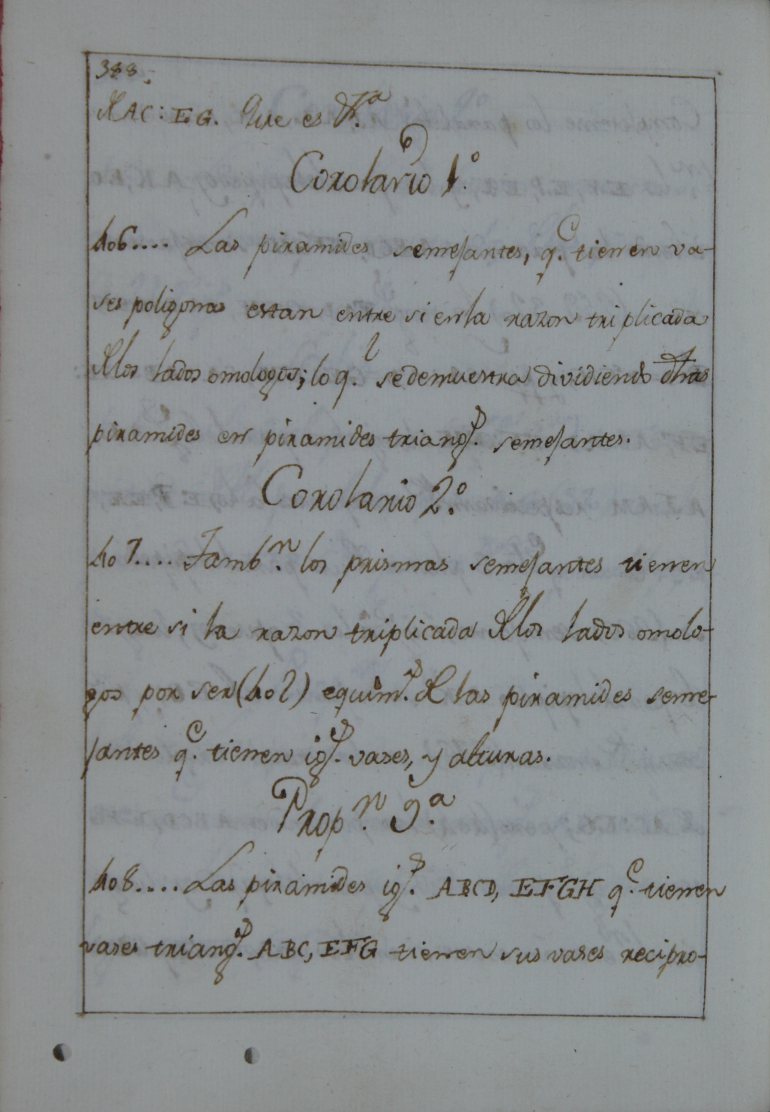 388.
de AC: EG. Que es &.ª
Corolario 1.º
406.... Las piramides semejantes, q.e tienen va-
ses poligonas estan entre si en la razon triplicada
de los lados omologos; lo q.l se demuestra dividiendo dhas
piramides en piramides triang.s semejantes.
Corolario 2.º
407.... Tamb.n los prismas semejantes tienen
entre si la razon triplicada de los lados omolo-
gos por ser (402) equim.s de las piramides seme-
jantes q.e tienen ig.s vases, y alturas.
Prop.n 9.ª
408.... Las piramides ig.s ABCD, EFGH q.e tienen
vases triang.s ABC, EFG tienen sus vases recipro-